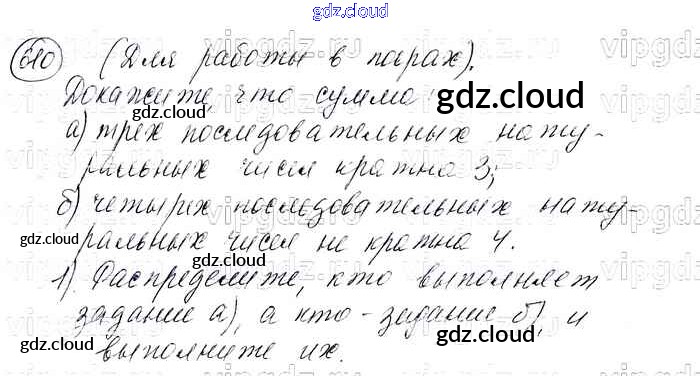 gdz.cloud
610 (Для работы в парах).
Докажите, что сумма:
а) трех последовательных нату-
ральных чисел кратна 3;
б) четырех последовательных нату-
ральных чисел не кратна 4.
1) Распределите, кто выполняет
задание а), а кто - задание б), и
выполните их.
gdz.cloud
gdz.cloud
gdz.cloud
gdz.cloud
gdz.cloud
gdz.cloud
gdz.cloud